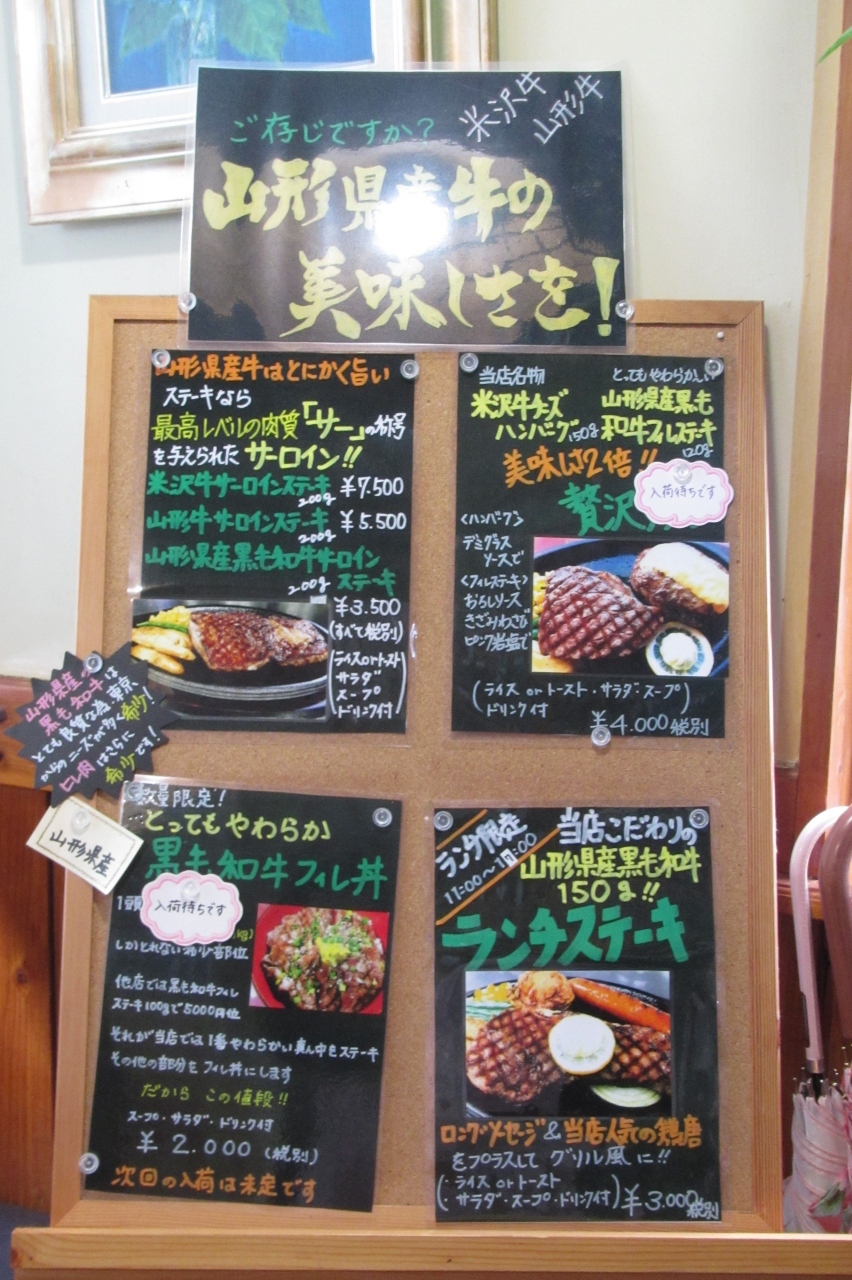 ご存じですか?
米沢牛
山形牛
山形県産牛の
美味しさを!
山形県産牛はとにかく旨い
ステーキなら
最高レベルの肉質「サー」の称号
を与えられた サーロイン!!
米沢牛サーロインステーキ
200g
¥7.500
山形牛サーロインステーキ
200g
¥5.500
山形県産黒毛和牛サーロイン
200g ステーキ
¥3.500
(すべて税別)
ライスorトースト
サラダ
スープ
ドリンク付
当店名物
米沢牛チーズ
ハンバーグ150g
とってもやわらかい
山形県産黒毛
和牛フィレステーキ
120g
美味しさ2倍!!
贅沢
入荷待ちです
<ハンバーグ>
デミグラス
ソースで
<フィレステーキ>
おろしソース
きざみわさび
ピンク岩塩で
(ライス or トースト・サラダ・スープ)
ドリンク付
¥4.000税別
山形県産
黒毛和牛は
とても良質な為、東京
からのニーズが多く希少!
ヒレ肉はさらに
希少です!
山形県産
数量限定!
とってもやわらか
黒毛和牛フィレ丼
1頭
入荷待ちです
kg)
しかとれない希少部位
他店では黒毛和牛フィレ
ステーキ100gで5000円位
それが当店では1番やわらかい真ん中をステーキ
その他の部分をフィレ丼にします
だから この値段!!
スープ・サラダ・ドリンク付
¥2.000(税別)
次回の入荷は未定です
ランチ限定
11:00〜
:00
当店こだわりの
山形県産黒毛和牛
150g!!
ランチステーキ
ロングソーセージ&当店人気の鶏唐
をプラスして グリル風に!!
(ライス orトースト
・サラダ・スープ・ドリンク付)
¥3.000税別